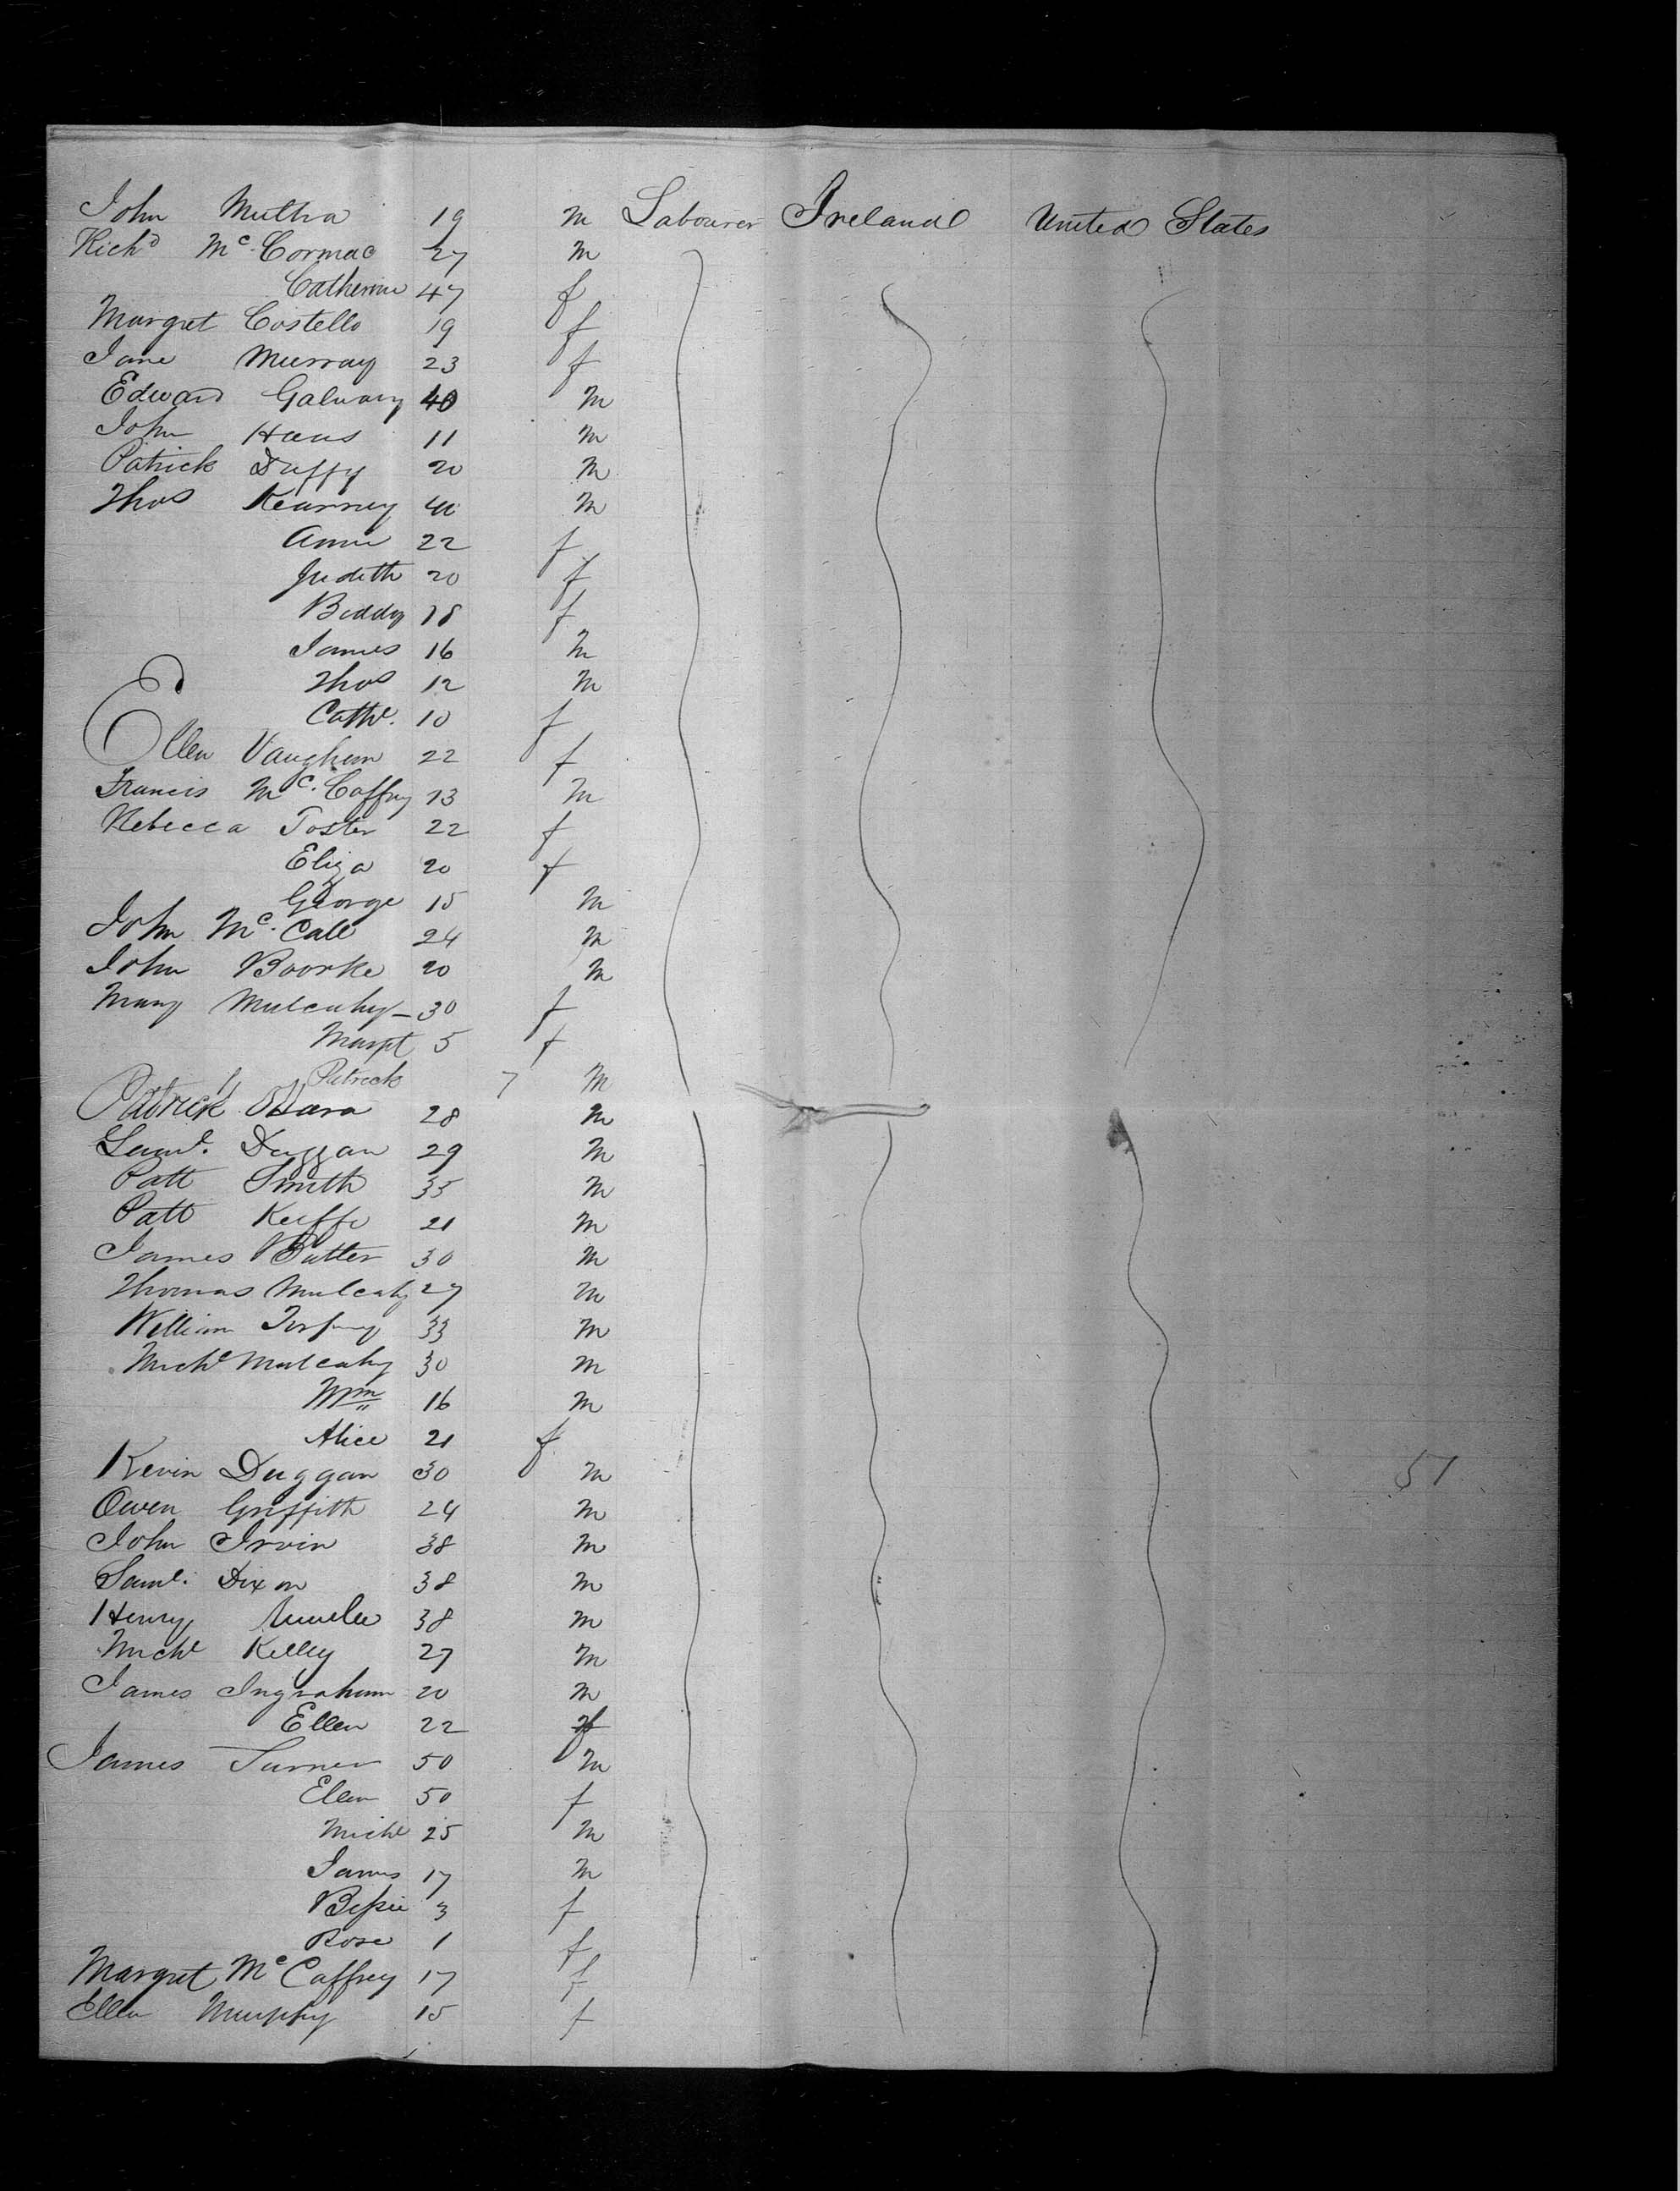 John Mulha 19 m Labourer Ireland United States
Rich^d M^c. Cormac 27 m
Catherine 47 f
Margret Costello 19 f
Jane Murray 23 f
Edward Galwary 40 m
John Haus 11 m
Patrick Duffy 20 m
Thos Kearney 40 m
Anne 22 f
Judith 20 f
Biddy 18 f
James 16 m
Thos 12 m
Cathe. 10 f
Ellen Vaughan 22 f
Francis M^c. Caffrey 13 m
Rebecca Foster 22 f
Eliza 20 f
George 15 m
John M^c. Call 24 m
John Boorke 20 m
Mary Mulcahy - 30 f
Margt 5 f
Patrick 7 m
Patrick OHara 28 m
Saml. Duggan 29 m
Patt Smith 35 m
Patt Keiffe 21 m
James Butter 30 m
Thomas Mulcahy 27 m
William 33 m
Michl Mulcahy 30 m
Wm 16 m
Alice 21 f
Kevin Duggan 30 m 51
Owen Griffith 24 m
John Irvin 38 m
Saml. Dixon 38 m
Henry 38 m
Michl Kelley 27 m
James Ingraham 20 m
Ellen 22 f
James Turner 50 m
Ellen 50 f
Michl 25 m
James 17 m
Bessie 3 f
Rose 1 f
Margret M^c Caffrey 17 f
Ellen Murphy 15 f